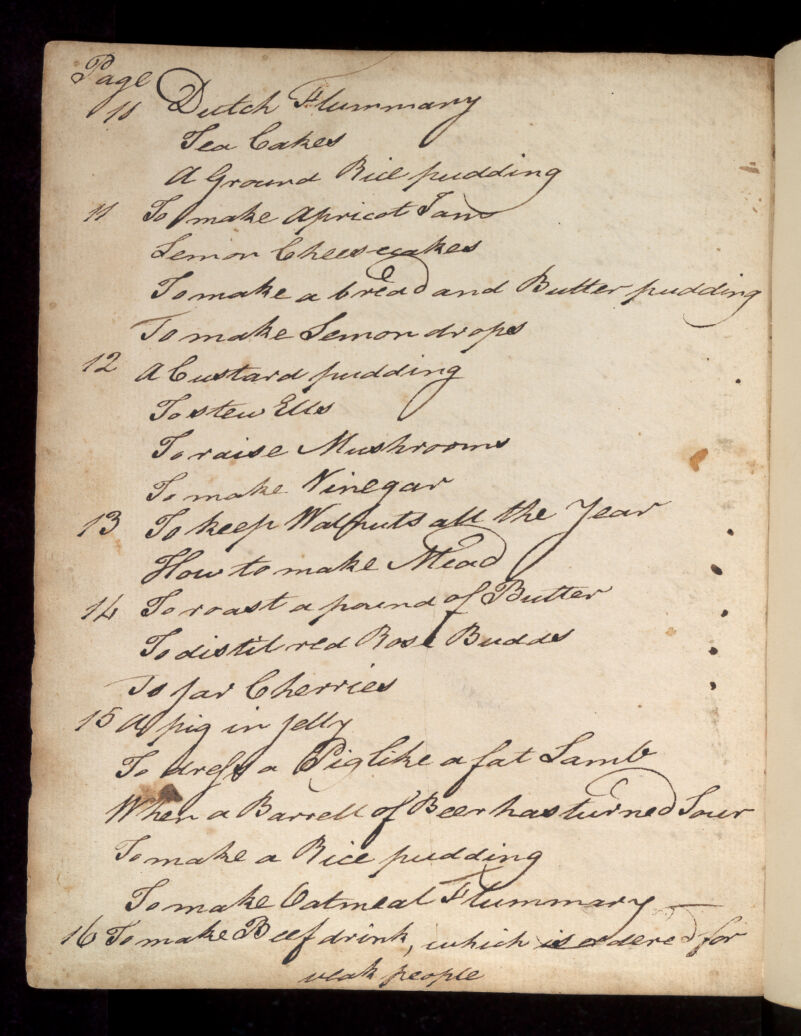 Page
11 Dutch Flummary
Tea Cakes
A Ground Rice pudding
11 To make Apricot Jam
Lemon Cheesecakes
To make a bread and Butter pudding
To make Lemon drops
12 A Custard pudding
To stew Ells
To raise Mushrooms
To make Vinegar
13 To keep Walnuts all the Year
How to make Mead
14 To roast a pound of Butter
To distil red Rose Budds
To jar Cherries
15 A pig in jelly
To dress a Pig like a fat Lamb
When a Barrell of Beer has turned Sour
To make a Rice pudding
To make Oatmeal Flummary
16 To make Beef drink, which is odered for
weak people